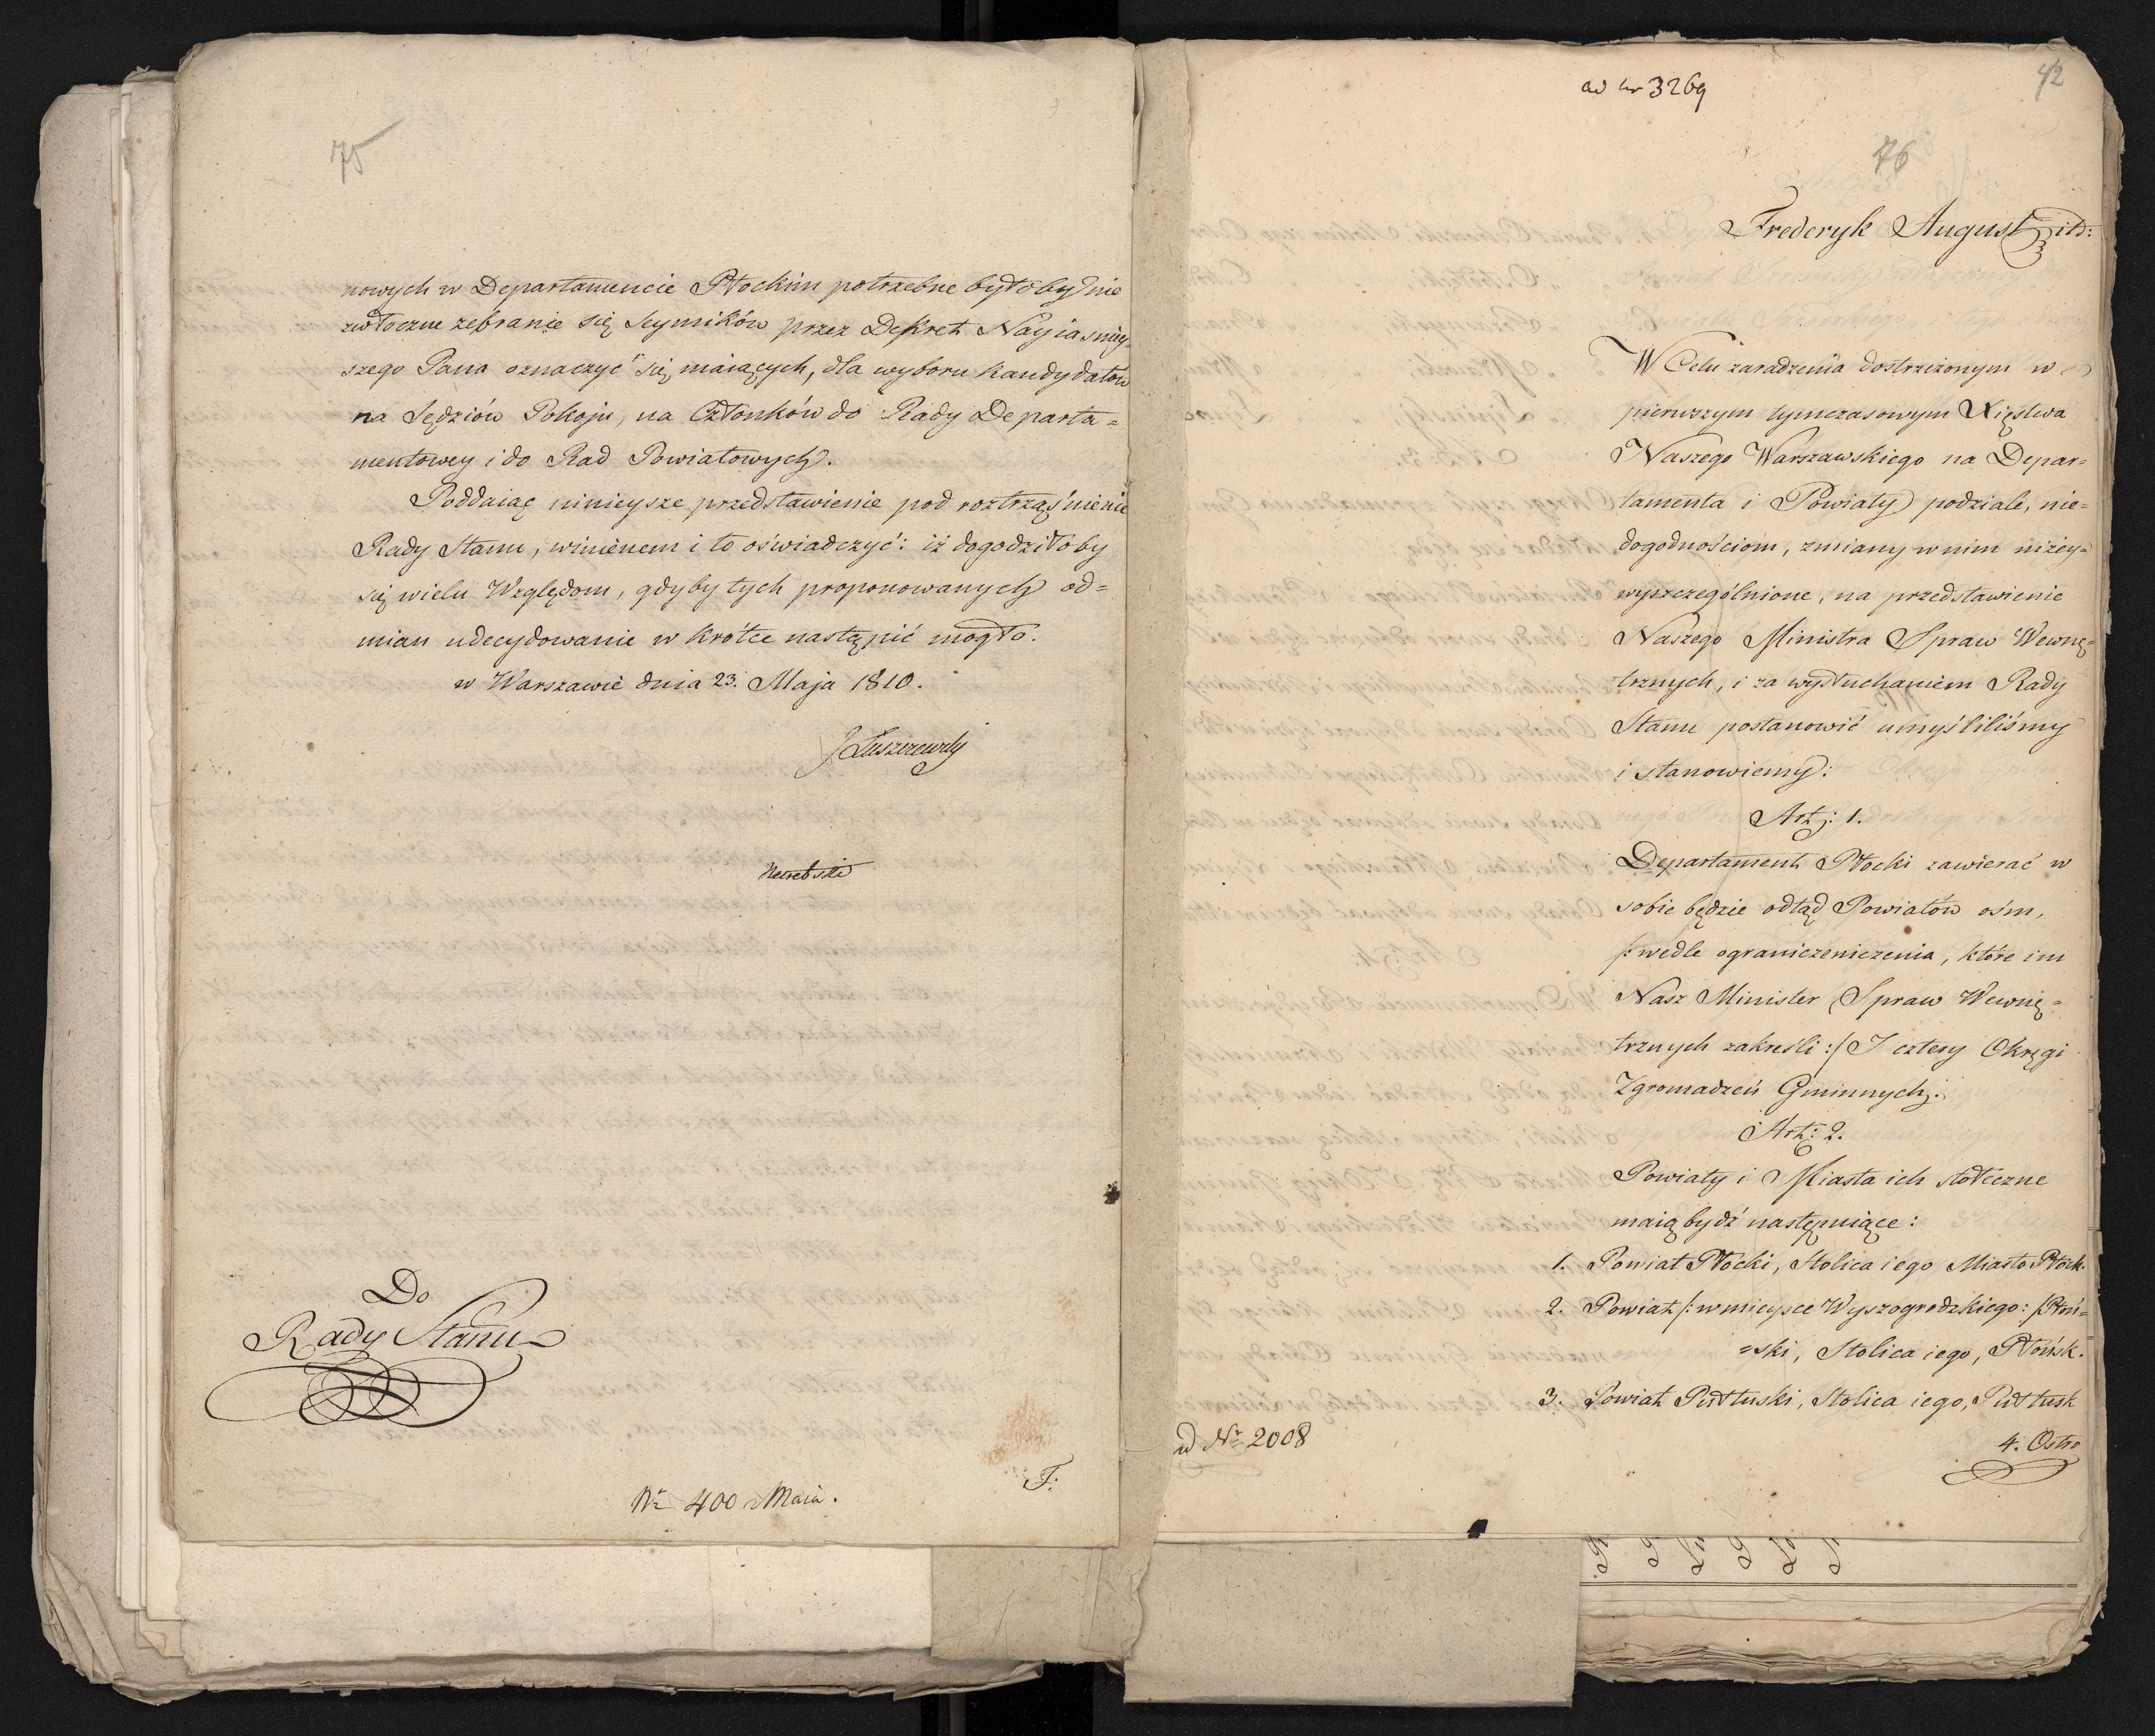 75
nowych w Departamencie Płockim potrzebne byłoby nie
zwłoczne zebranie się Seymików przez Dekret Nayiaśniey
szego Pana oznaczyć się maiących, dla wyboru kandydatów
na Sędziów Pokoju, na Członków do Rady Departa=
mentowey i do Rad Powiatowych.
Poddaiąc ninieysze przedstawienie pod roztrząśnienie
Rady Stanu, winienem i to oświadczyć: iż dogodziłoby
się wielu Względom, gdyby tych proponowanych od=
mian udecydowanie w krótce nastąpić mogło.
w Warszawie dnia 23. Maja 1810.
J Łuszczewski
Do
Rady Stanu
No 400 Maia.
F:
ad nr 3269
42
76
Frederyk August itd:
W Celu zaradzenia dostrzeżonym w
pierwszym tymczasowym Xięstwa
Naszego Warszawskiego na Depar=
tamenta i Powiaty podziale, nie=
dogodnościom, zmiany w nim niżey=
wyszczególnione, na przedstawienie
Naszego Ministra Spraw Wewnę=
trznych, i za wysłuchaniem Rady
Stanu postanowić umyśliliśmy
i stanowiemy:
Art: 1.
Departament Płocki zawierać w
sobie będzie odtąd Powiatów ośm,
/:wedle ograniczeniczenia, które im
Nasz Minister Spraw Wewnę=
trznych zakreśli:/ I cztery Okręgi
Zgromadzeń Gminnych.
Art: 2.
Powiaty i Miasta ich stołeczne
maią bydź następuiące:
1. Powiat Płocki, Stolica iego Miasto Płock.
2. Powiat /:w mieysce Wyszogrodzkiego:/ Płoń=
=ski, Stolica iego, Płońsk.
3. Powiat Pułtuski, Stolica iego, Pułtusk
4. Ostro
ad No 2008